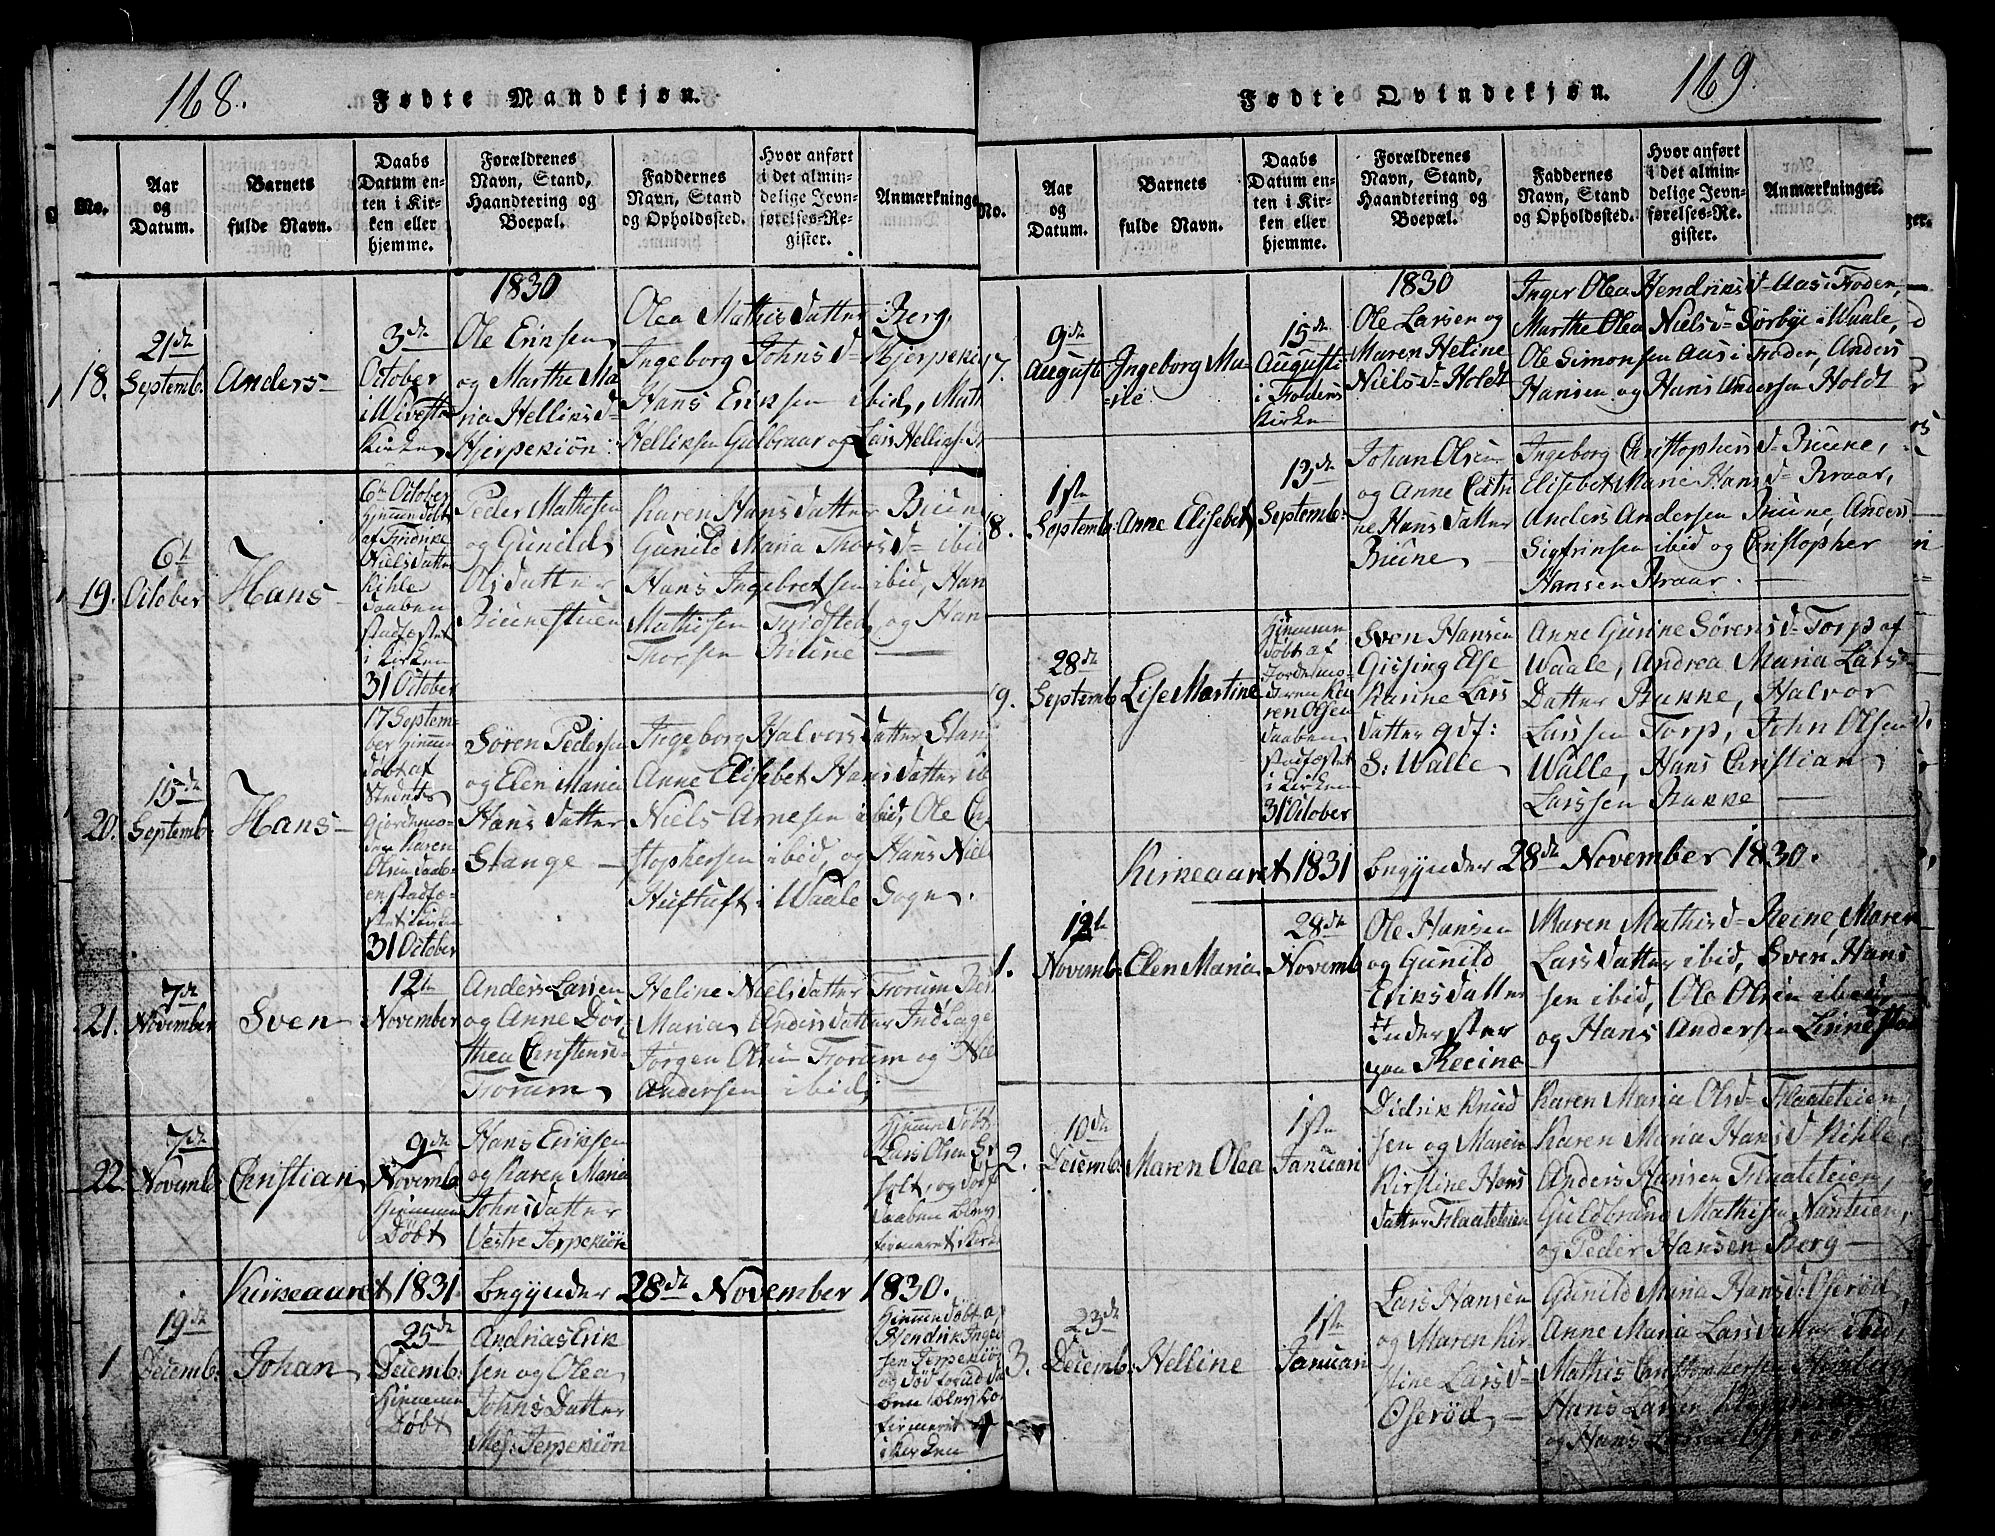 168.
Fødte Mandkjøn.
No.
Aar
og
Datum.
Barnets
fulde Navn.
Daabs
Datum en-
ten i Kir-
ken eller
hjemme.
Forældrenes
Navn, Stand,
Haandtering og
Boepæl.
Faddernes
Navn, Stand
og Opholdssted.
Hvor anført
i det almin-
delige Jevn-
førelses-Re-
gister.
Anmærkninge
1830
18.
21de
Septemb:
Anders
3de
October
i
Kirke
Ole Eriksen
og Marthe Ma
ria Helliksd=
Hjerpekiön
Olea Mathisdatter Berg,
Ingeborg Johnsd= Hjerpeki
Hans Eriksen ibid, Mat
Helliksen Gulbraar og Lars
19.
6te
October
Hans
6te October
Hjemmedöbt
af
Nielsdatter
Kihle
Daaben
stadfæstet
i Kirken
31 October
Peder Mathisen
og Gunild
Olsdatter
Karen Hansdatter Brune
Gunild Maria Thorsd= ibid
Hans Ingebretsen ibid, Han
Mathisen og Han
Thorsen Brune
20.
15de
Septemb:
Hans
17 Septem-
ber hjemme
döbt af
Karen
Olsen Daab-
en stadfæ-
stet i Kirken
31 October
Sören Pedersen
og Elen Maria
Hansdatter
Stange
Ingeborg Halvorsdatter Stang
Anne Elisebet Hansdatter ib
Niels Arnesen ibid, Ole Chr
stophersen ibid, og Hans Niels
Huftuft i Waale Sogn.
21.
7de
November
Sven
12te
November
Anders Larsen
og Anne Dor
thea Christensd=
Trorum
Heline Nielsdatter Trorum
Maria Andersdatter
Jörgen Olsen Trorum og Nie
Andersen ibid,
22.
7de
Novemb:
Christian
9de
Novemb
Hjemme
Döbt
Hans Eriksen
og Karen Maria
Johnsdatter
Vestre Jerpekiön
Hjemme Döbt
Lars Olsen
Daaben blev
Kirkeaaret 1831 begynder 28de November 1830.
1
19de
Decemb:
Johan
25de
Decemb:
Hjemme
Döbt
Andrias Erik
sen og Olea
Johns Datter
Mel: Jerpekiön
Hjemmedöbt a
Hendrik Inge
sen Jerpekiön
i Kirken
169.
Fødte Qvindekjøn.
No.
Aar
og
Datum.
Barnets
fulde Navn.
Daabs
Datum en-
ten i Kir-
ken eller
hjemme.
Forældrenes
Navn, Stand,
Haandtering og
Boepæl.
Faddernes
Navn, Stand
og Opholdssted.
Hvor anført
i det almin-
delige Jevn-
førelses-Re-
gister.
Anmærkninger.
1830
7.
9de
August
Ingeborg Ma-
rie
15de
Augusti
i Fodens
Kirke
Ole Larsen og
Maren Heline
Nielsd= Holdt
Inger Olea Hendriksd= Aas i Foden,
Marthe Olea Nielsd= Sörbye i Waale,
Ole Simonsen Aas i Foden, Anders
Hansen og Hans Andersen Holdt
8.
1ste
Septemb:
Anne Elisebet
13de
Septemb:
Johan Olsen
og Anne Cathri
ne Hans datter
Brune
Ingeborg Christophersd= Brune,
Elisebet Marie Hansd= Kraar,
Anders Andersen Brune, Anders
Sigfrinsen ibid og Christopher
Hansen Kraar.
9.
28de
Septemb
Lise Martine
Hjemme
döbt af
Jordemo-
deren Ka-
ren Olsen
Daaben
stadfæstet
i Kirken
31 October
Sven Hansen
Gissing Else
Karine Lars
datter gdf:
S: Walle
Anne Gurine Sörensd= Torp af
Waale, Andrea Maria Lars
Datter Bakke, Halvor
Larssen Torp, John Olsen
Walle, Hans Christian
Larssen Bakke
Kirkeaaret 1831 begynder 28de November 1830.
1.
12te
Novemb:
Elen Maria
28de
Novemb
Ole Hansen
og Gunild
Eriksdatter
Inderster
paa Reeine
Maren Mathisd= Reine, Maren
Larsdatter ibid, Sven Hans
sen ibid, Ole Olsen ibid,
og Hans Andersen Linnestad
2.
10de
Decemb:
Maren Olea
1ste
Januari
Didrik Knud
sen og Maren
Kirstine Hans
datter Flaateteien
Karen Maria Olsd= Flaateteien,
Karen Maria Hansd= Kihle,
Anders Hansen Flaateteien,
Guldbrand Mathisen Nanteien,
og Peder Hansen Berg
3.
23de
Decemb:
Helline
1ste
Januari
Lars Hansen
og Maren Kir-
stine Larsd=
Oseröd
Gunild Maria Hansd: Oseröd,
Anne Maria Larsdatter ibid,
Mathis Christophersen
Hans Larsen
og Hans